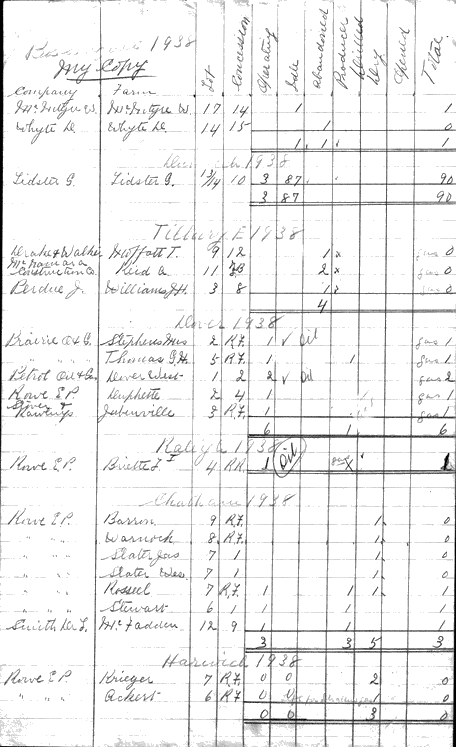 1938
My Copy
Company Farm Lot Concession Operating Idle Abandoned Producer Drilled Dry Total
McIntyre W. McIntyre W. 17 14 1 1
Whyte D. Whyte D. 14 15 1 0
1 1 1
1938
Lidster G. Lidster G. 13/14 10 3 87 90
3 87 90
Tilbury E 1938
Drake & Walker Moffatt T. 9 12 1 x gas 0
McNamara
Construction Co. Reid A. 11 2 x gas 0
Perdue J. Williams J.H. 3 8 1 x gas 0
4
Dover 1938
Prairie O & G. Stephens 2 R.F. 1 ✓ Oil gas 1
" " " Thomas G.H. 5 R.F. 1 1 gas 1
Petrol Oil & Gas Dover West 1 2 2 ✓ Oil gas 2
Rowe E.P. Duphette 2 4 1 gas 1
Rawlings Jubenville 3 R.F. 1 gas 1
6 1 6
Raleigh 1938
Rowe E.P. 4 R.R. 1 Oil gas x 1
Chatham 1938
Rowe E.P. Barron 9 R.F. 1 0
" " " Warnock 8 R.F. 1 0
" " " Slater Jas 7 1 1 0
" " " Slater Wes. 7 1 1 0
" " " Russell 7 R.F. 1 1 1 1
" " " Stewart 6 1 1 1 1
Smith McFadden 12 9 1 1 1
3 3 5 3
Harwich 1938
Rowe E.P. Krieger 7 R.F. 0 0 2 0
" " " Ackert 6 R.F. 0 0 1 0
0 0 3 0